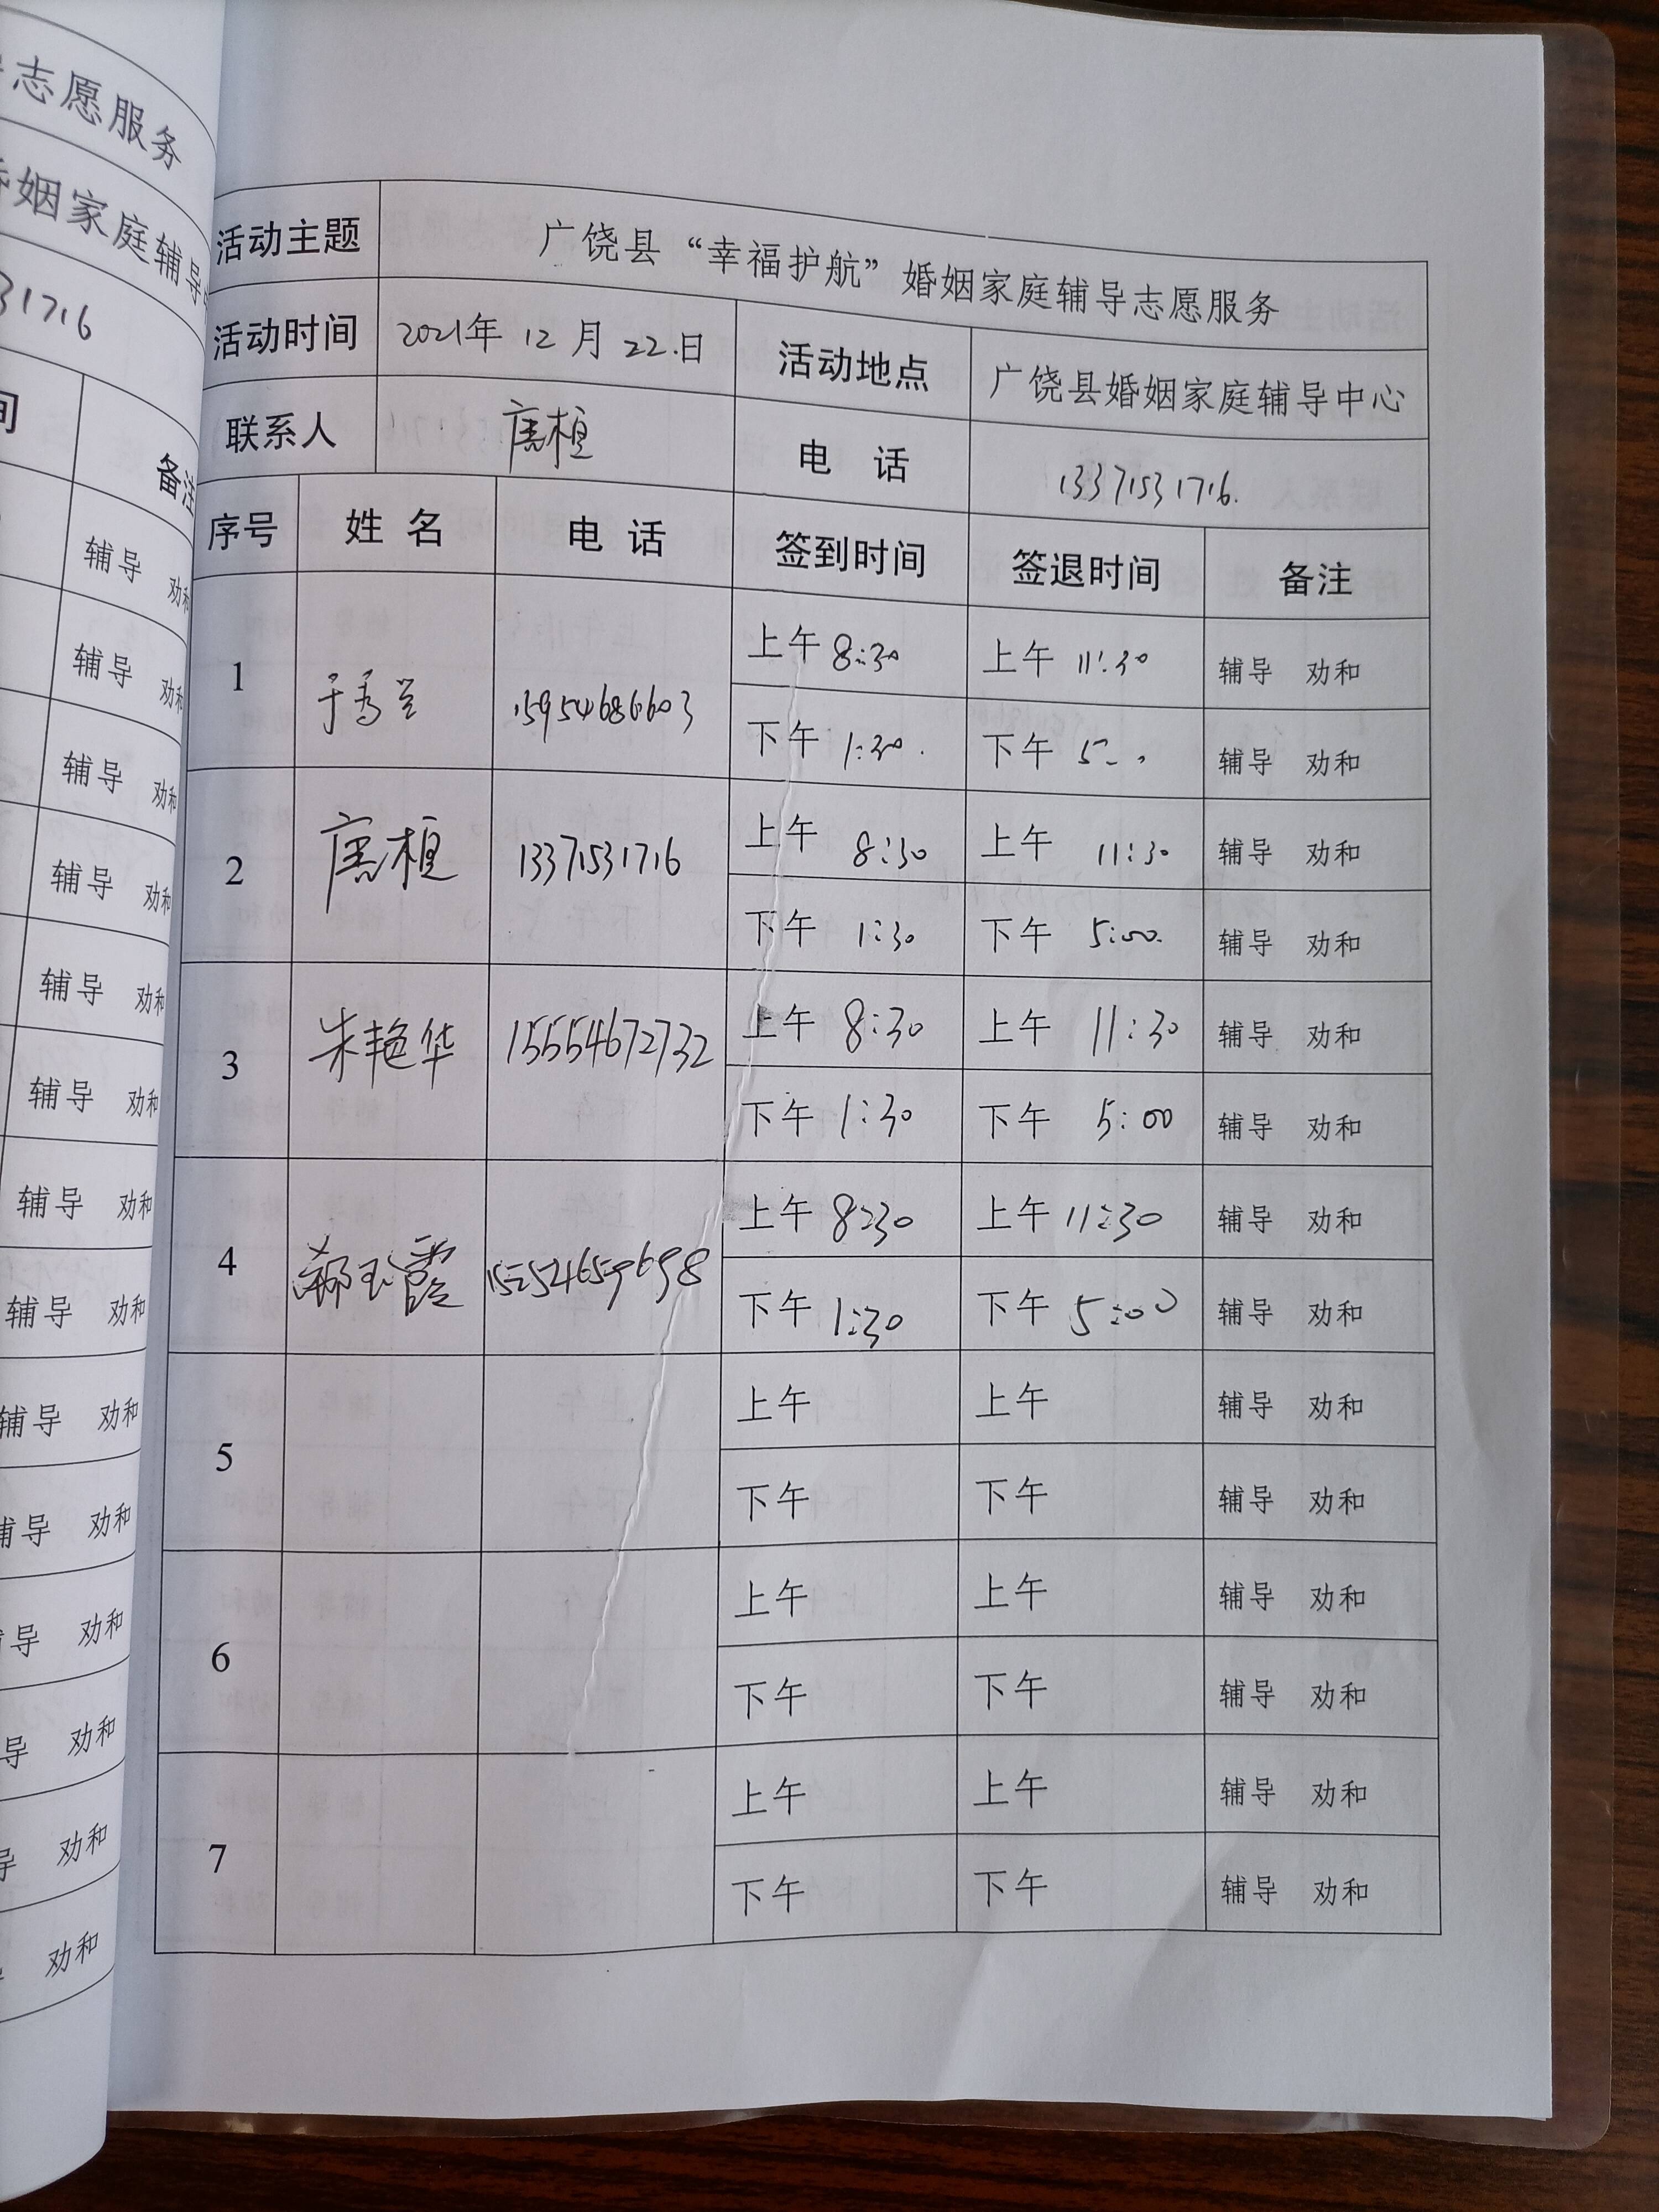 志愿服务
婚姻家庭辅导
31716
间 备注
辅导 劝和
辅导 劝和
辅导 劝和
辅导 劝和
辅导 劝和
辅导 劝和
辅导 劝和
辅导 劝和
辅导 劝和
辅导 劝和
导 劝和
导 劝和
导 劝和
劝和
活动主题 广饶县“幸福护航”婚姻家庭辅导志愿服务
活动时间 2021年 12 月 22.日 活动地点 广饶县婚姻家庭辅导中心
联系人 唐植 电 话 13371531716.
序号 姓 名 电 话 签到时间 签退时间 备注
1 于秀兰 15954686603 上午 8:30 上午 11:30 辅导 劝和
下午 1:30. 下午 辅导 劝和
2 唐植 13371531716 上午 8:30 上午 11:30 辅导 劝和
下午 1:30 下午 5:00. 辅导 劝和
3 朱艳华 15554672732 上午 8:30 上午 11:30 辅导 劝和
下午 1:30 下午 5:00 辅导 劝和
4 上午 8:30 上午 11:30 辅导 劝和
下午 1:30 下午 5:00 辅导 劝和
5 上午 上午 辅导 劝和
下午 下午 辅导 劝和
6 上午 上午 辅导 劝和
下午 下午 辅导 劝和
7 上午 上午 辅导 劝和
下午 下午 辅导 劝和